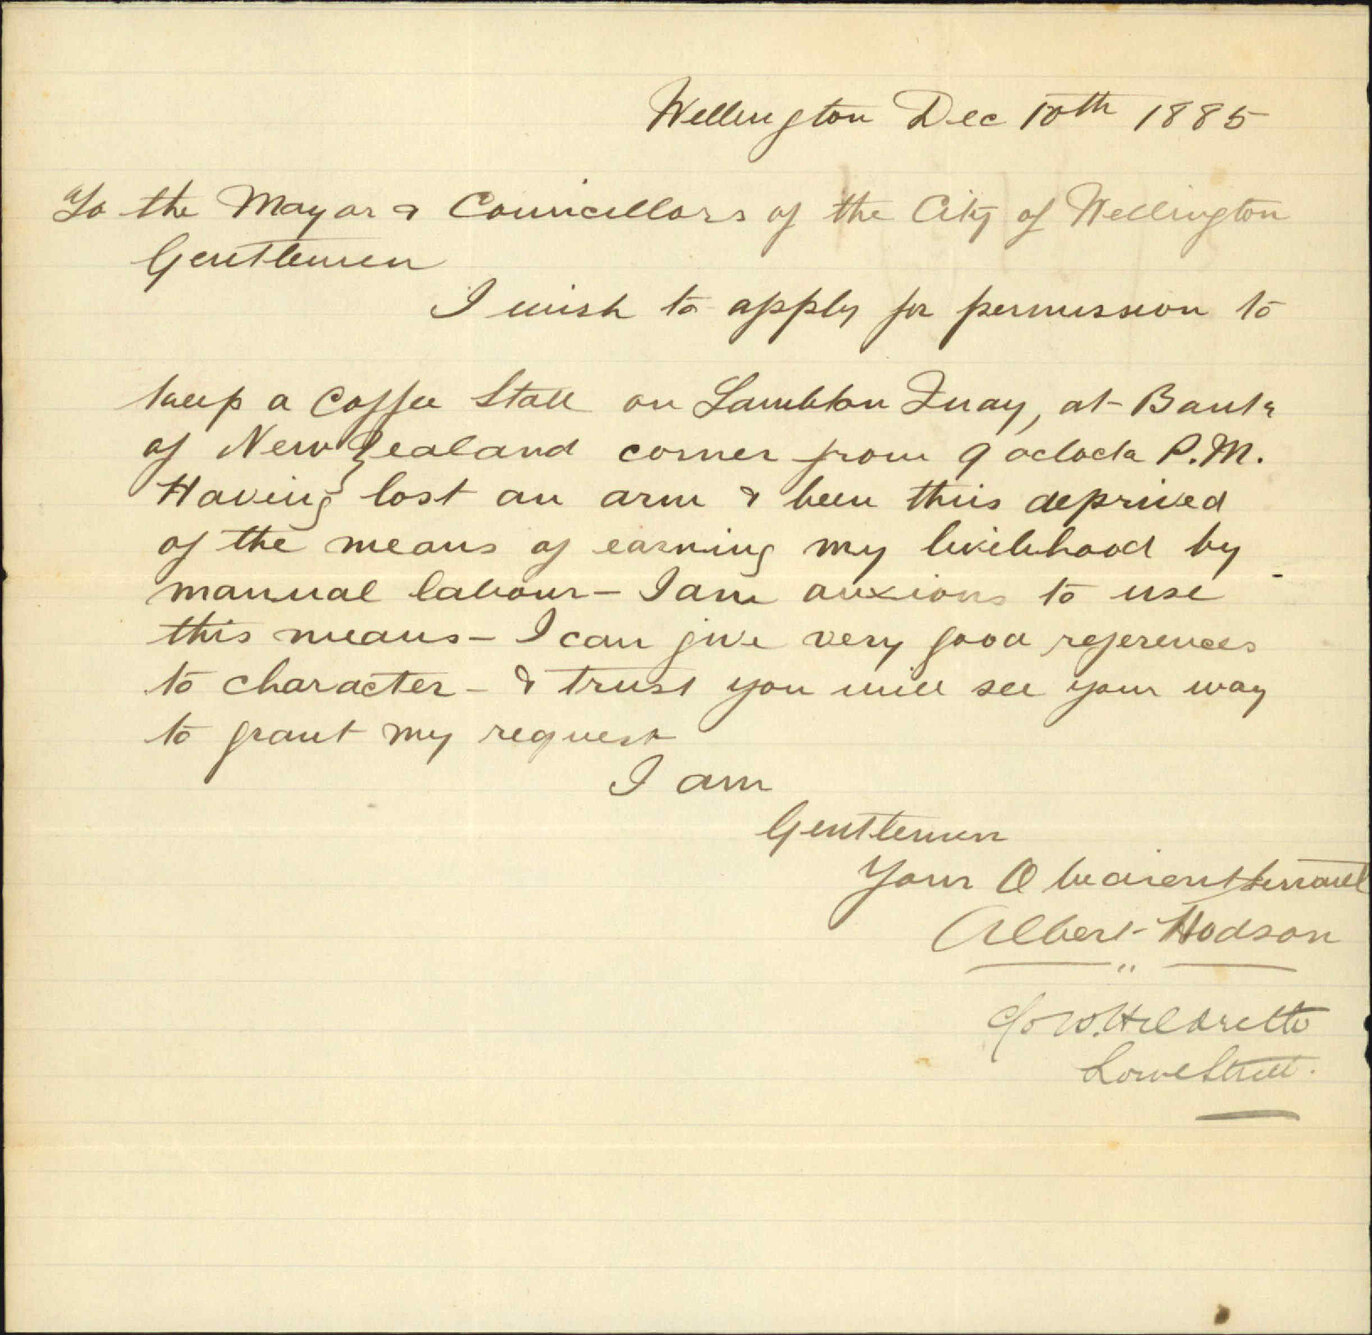 Wellington Dec 10th 1885
To the Mayor & Councillors of the City of Wellington
Gentlemen
I wish to apply for permission to
keep a Coffee Stall on Lambton Quay, at Bank
of New Zealand corner from 9 oclock P.M.
Having lost an arm & been thus deprived
of the means of earning my livelihood by
manual labour - I am anxious to use
this means - I can give very good references
to character - & trust you will see your way
to grant my request
I am
Gentlemen
Your Obedient Servant
Albert Hodson
C/o W. Hildreth
Lowe Street.